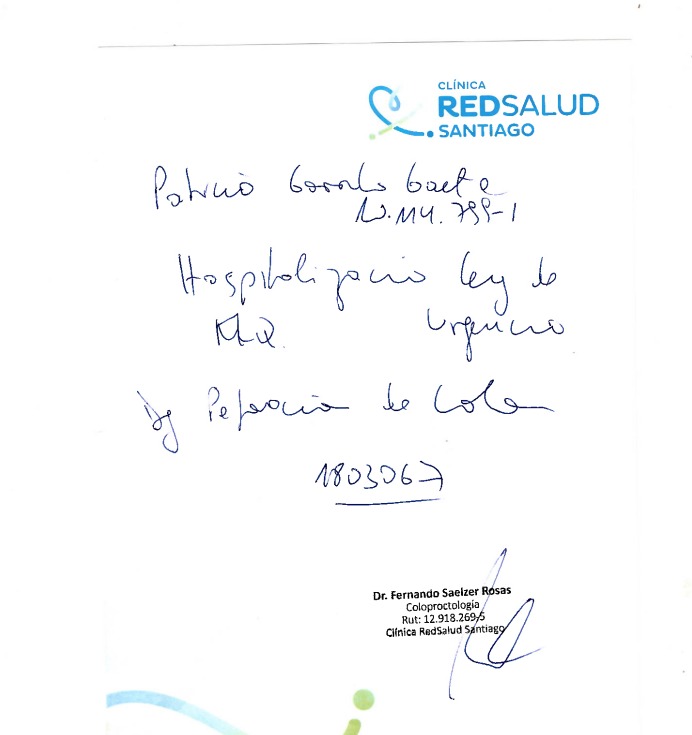 CLÍNICA
REDSALUD
SANTIAGO
Patricio Gaete
Hospitalización Ley de
Urgencia
MQ.
Dg Perforación de Colon
1803067
Dr. Fernando Saelzer Rosas
Coloproctología
Rut: 12.918.269-5
Clínica RedSalud Santiago